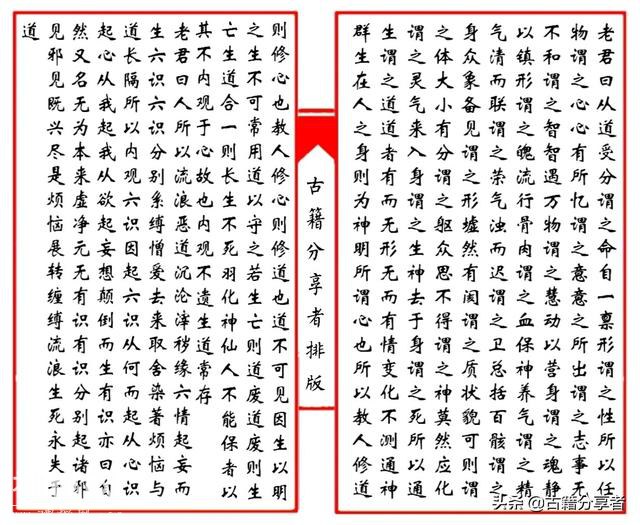 老君曰从道受分谓之命自一禀形谓之性所以任
物谓之心心有所忆谓之意意之所出谓之志事无
不和谓之智智遇万物谓之慧动以营身谓之魂静
以镇形谓之魄流行骨肉谓之血保神养气谓之精
气清而联谓之荣气浊而迟谓之卫总括百骸谓之
身众象备见谓之形墟然有阂谓之质状貌可则谓
之体大小有分谓之躯众思不得谓之神莫然应化
谓之灵气来入身谓之生神去于身谓之死所以通
生谓之道道者有而无形无而有情变化不测通神
群生在人之身则为神明所谓心也所以教人修道
古籍分享者排版
则修心也教人修心则修道也道不可见因生以明
之生不可常用道以守之若生亡则道废道废则生
亡生道合一则长生不死羽化神仙人不能保者以
其不内观于心故也内观不遗生道常存
老君曰人所以流浪恶道沉沦滓秽缘六情起妄而
生六识六识分别系缚憎爱去来取舍染著烦恼与
道长隔所以内观六识因起六识从何而起从心识
起心从我起我从欲起妄想颠倒而生有识亦曰自
然又名无为本来虚净元无有识有识分别起诸邪
见邪见既兴尽是烦恼展转缠缚流浪生死永失于
道
头条@古籍分享者